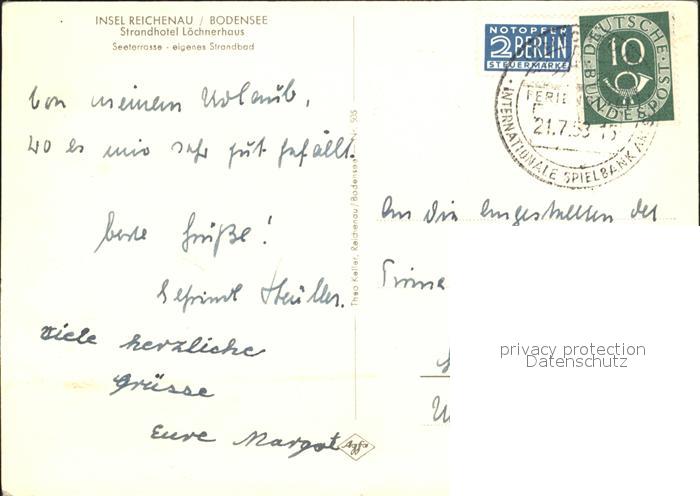 INSEL REICHENAU / BODENSEE
Strandhotel Löchnerhaus
Seeterrasse - eigenes Strandbad
Von meinem Urlaub,
wo es mir sehr gut gefällt.
beste Grüße!
Müller.
viele herzliche
Grüsse
Eure Margot
Agfa
Theo Keller, Reichenau/Bodensee
505
NOTOPFER
2 BERLIN
STEUERMARKE
DEUTSCHE BUNDESPOST
10
FERIEN
21.7.53
INTERNATIONALE SPIELBANK
An die Angestellten der
Firma
privacy protection
Datenschutz